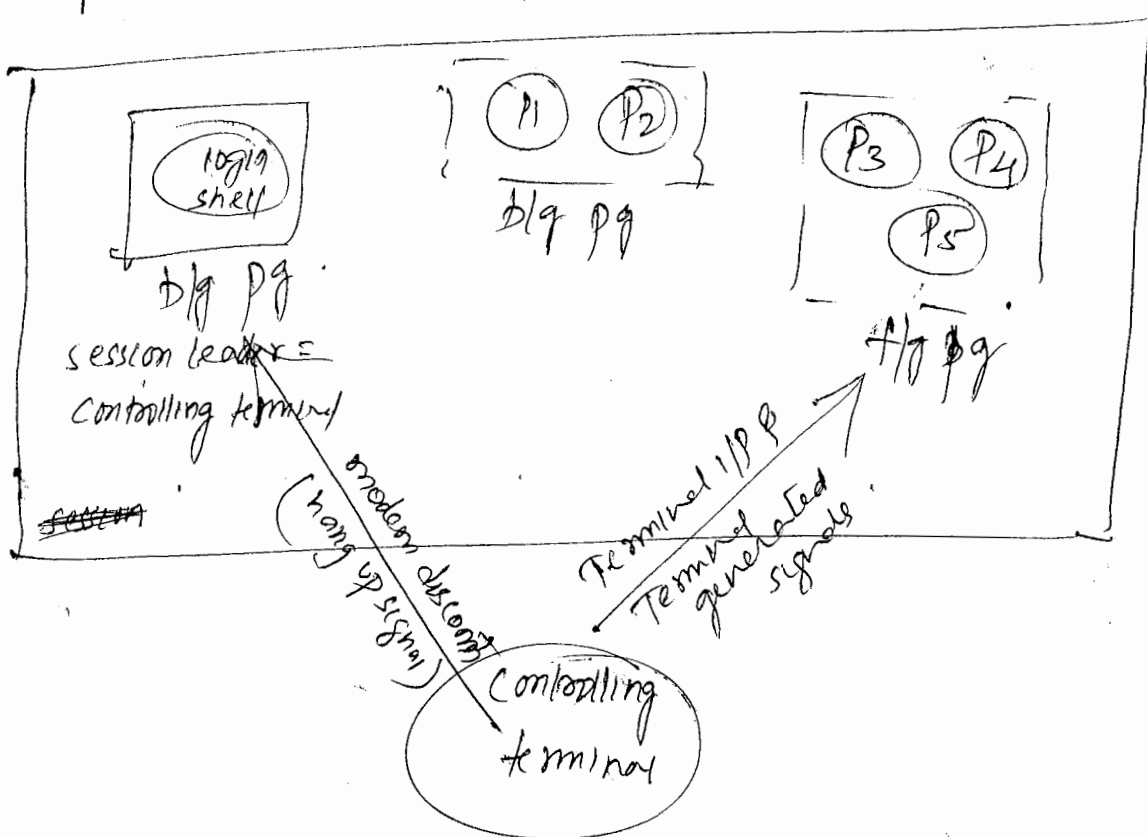 login
shell
b/g pg.
session leader =
controlling terminal
session
P1
P2
b/g pg
P3
P4
P5
f/g pg
modem disconnect
(hang up signal)
Terminal i/p &
Terminal
generated
signals
Controlling
terminal